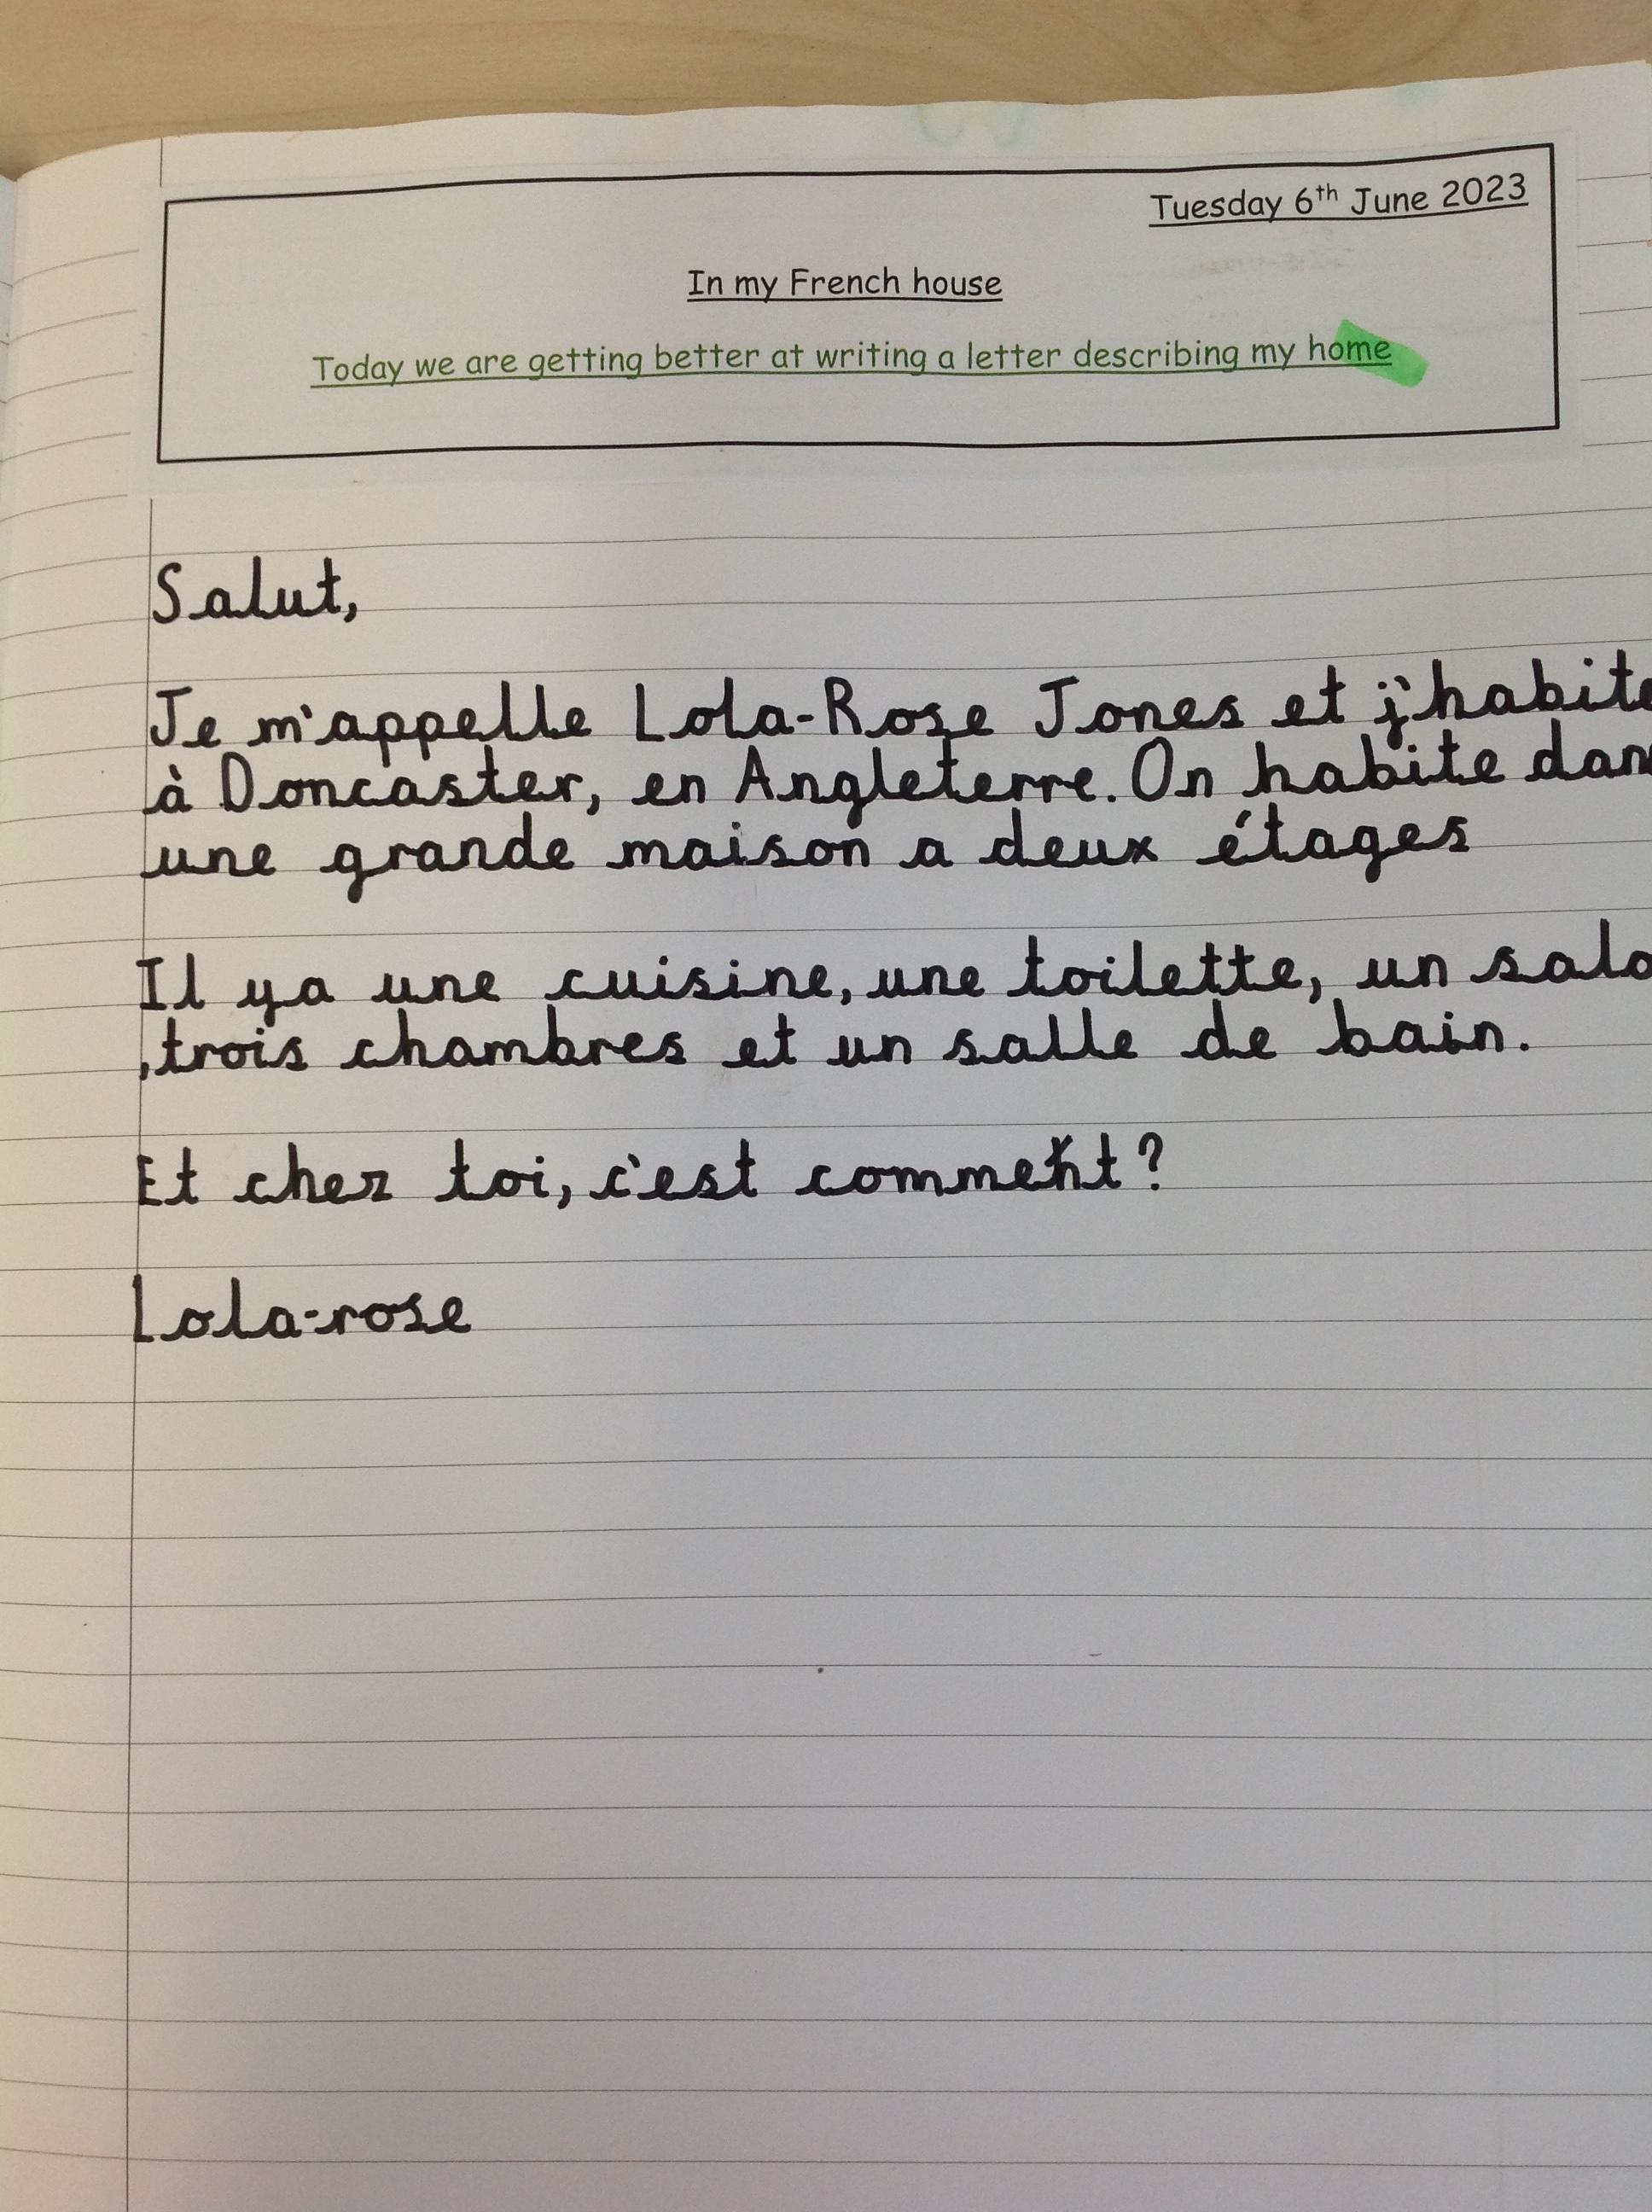 Tuesday 6th June 2023
In my French house
Today we are getting better at writing a letter describing my home
Salut,
Je m'appelle Lola-Rose Jones et j'habite
à Doncaster, en Angleterre. On habite dan
une grande maison a deux étages
Il ya une cuisine, une toilette, un salo
,trois chambres et un salle de bain.
Et chez toi, c'est comment?
Lola-rose